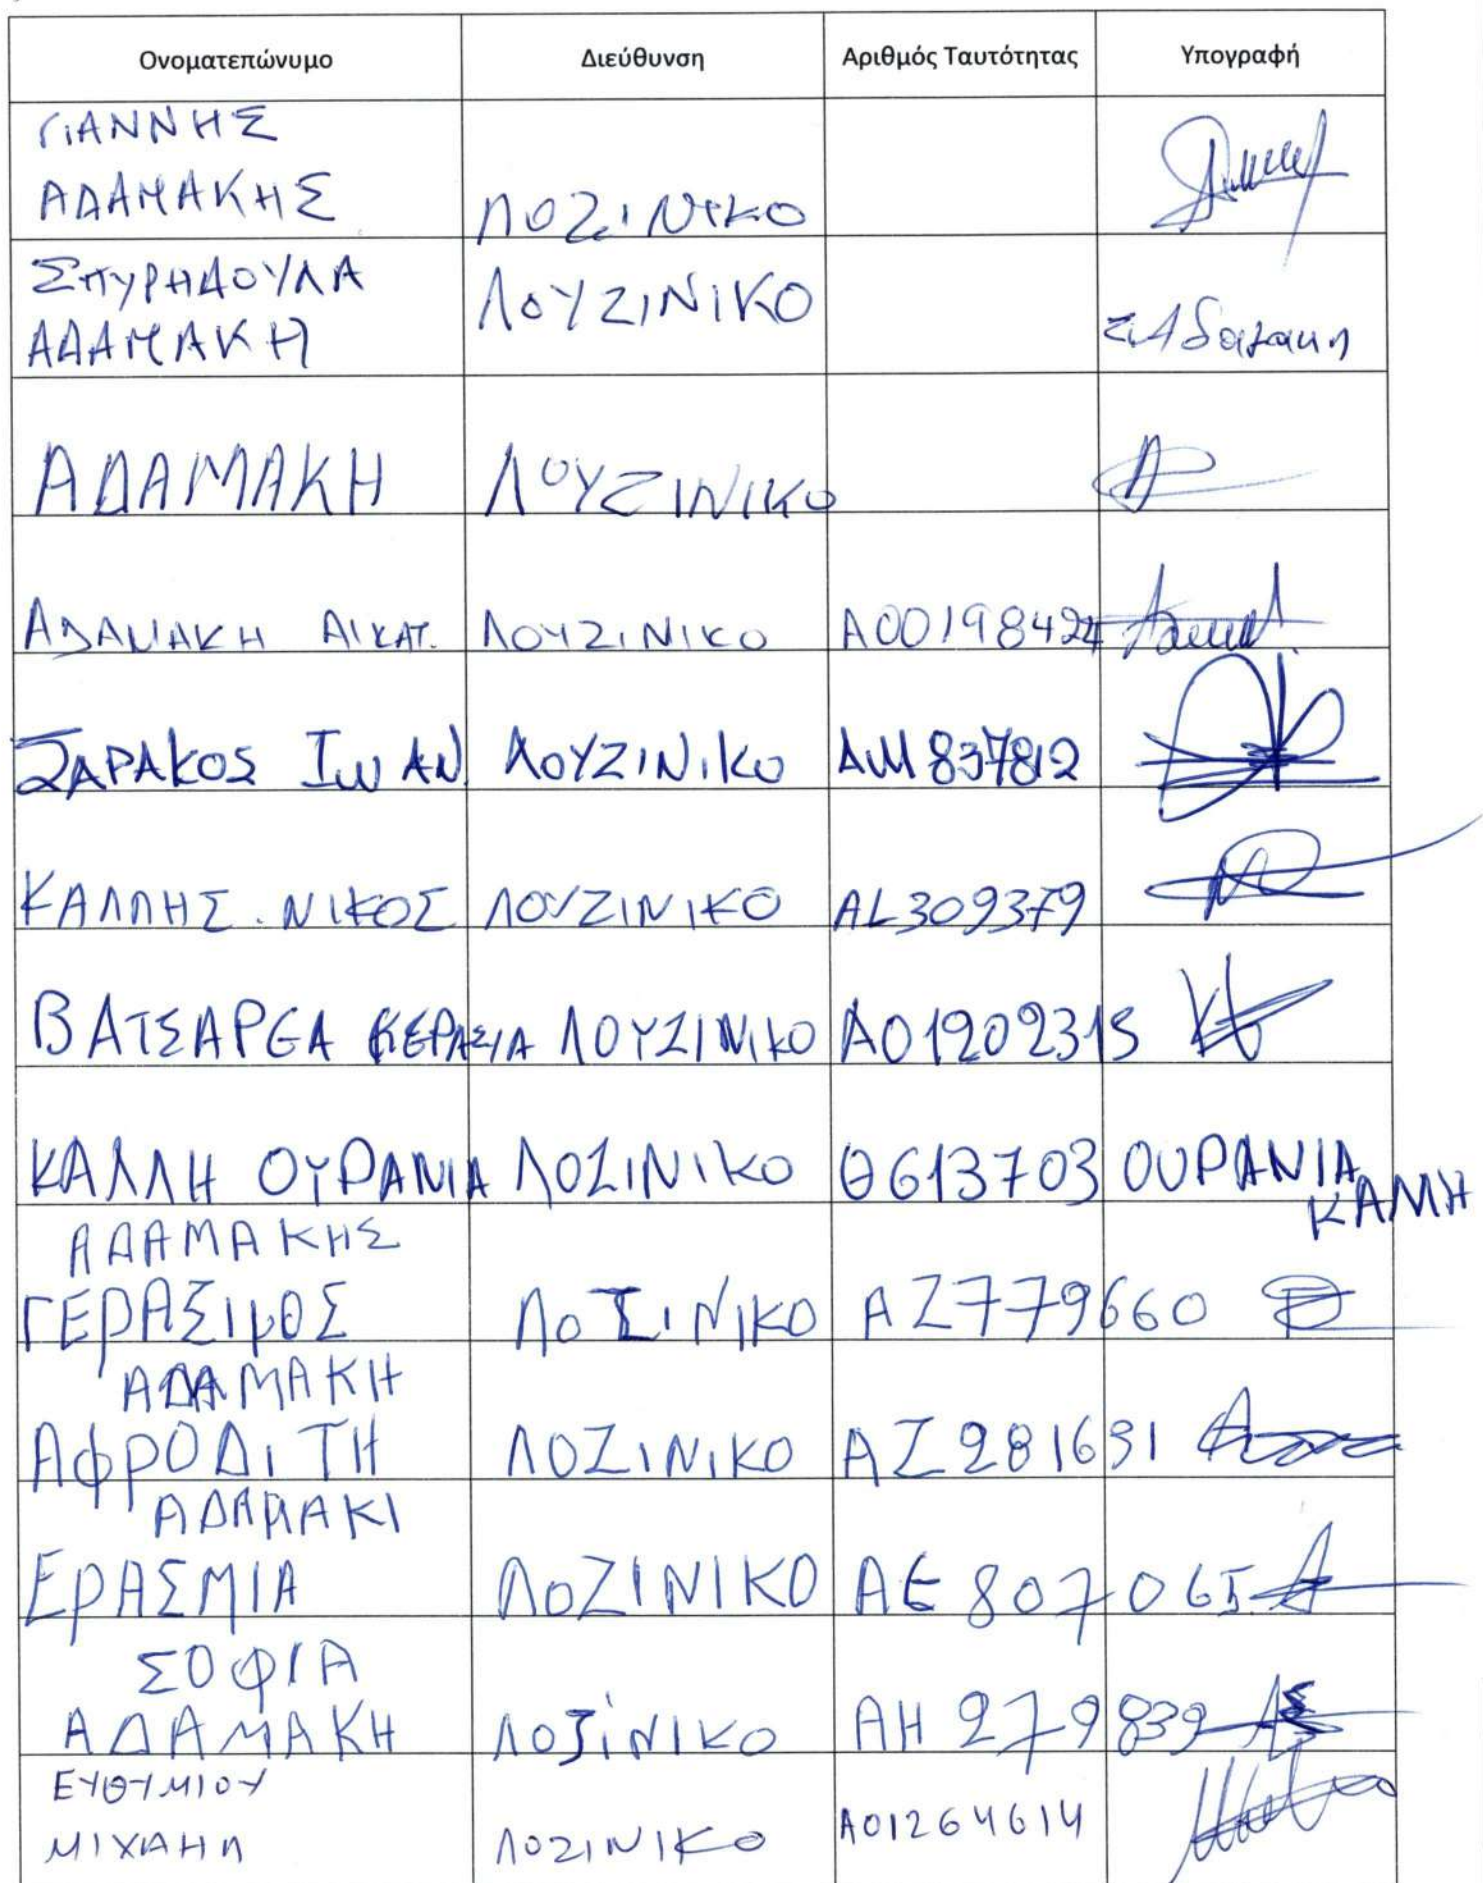 Ονοματεπώνυμο Διεύθυνση Αριθμός Ταυτότητας Υπογραφή
ΓΙΑΝΝΗΣ
ΑΔΑΜΑΚΗΣ ΛΟΖΙΝΙΚΟ
ΣΠΥΡΗΔΟΥΛΑ ΛΟΥΖΙΝΙΚΟ
ΑΔΑΜΑΚΗ Σ.Αδαμακη
ΑΔΑΜΑΚΗ ΛΟΥΖΙΝΙΚΟ
ΑΔΑΜΑΚΗ ΑΙΚΑΤ. ΛΟΥΖΙΝΙΚΟ Α00198424
ΖΑΡΑΚΟΣ ΙωΑΝ. ΛΟΥΖΙΝΙΚΟ ΑΜ837812
ΚΑΛΛΗΣ. ΝΙΚΟΣ ΛΟΥΖΙΝΙΚΟ ΑL309379
ΒΑΤΣΑΡΕΑ ΚΕΡΑΣΙΑ ΛΟΥΖΙΝΙΚΟ Α01202315
ΚΑΛΛΗ ΟΥΡΑΝΙΑ ΛΟΖΙΝΙΚΟ Θ613703 ΟΥΡΑΝΙΑ
ΚΑΛΛΗ
ΑΔΑΜΑΚΗΣ
ΓΕΡΑΣΙμΟΣ ΛΟΖΙΝΙΚΟ ΑΖ779660
ΑΔΑΜΑΚΗ
ΑΦΡΟΔΙΤΗ ΛΟΖΙΝΙΚΟ ΑΖ281691
ΑΔΑΜΑΚΙ
ΕΡΑΣΜΙΑ ΛΟΖΙΝΙΚΟ ΑΕ807065
ΣΟΦΙΑ
ΑΔΑΜΑΚΗ ΛΟΖΙΝΙΚΟ ΑΗ279839
ΕΥΘΥΜΙΟΥ
ΜΙΧΑΗΛ ΛΟΖΙΝΙΚΟ Α01264614